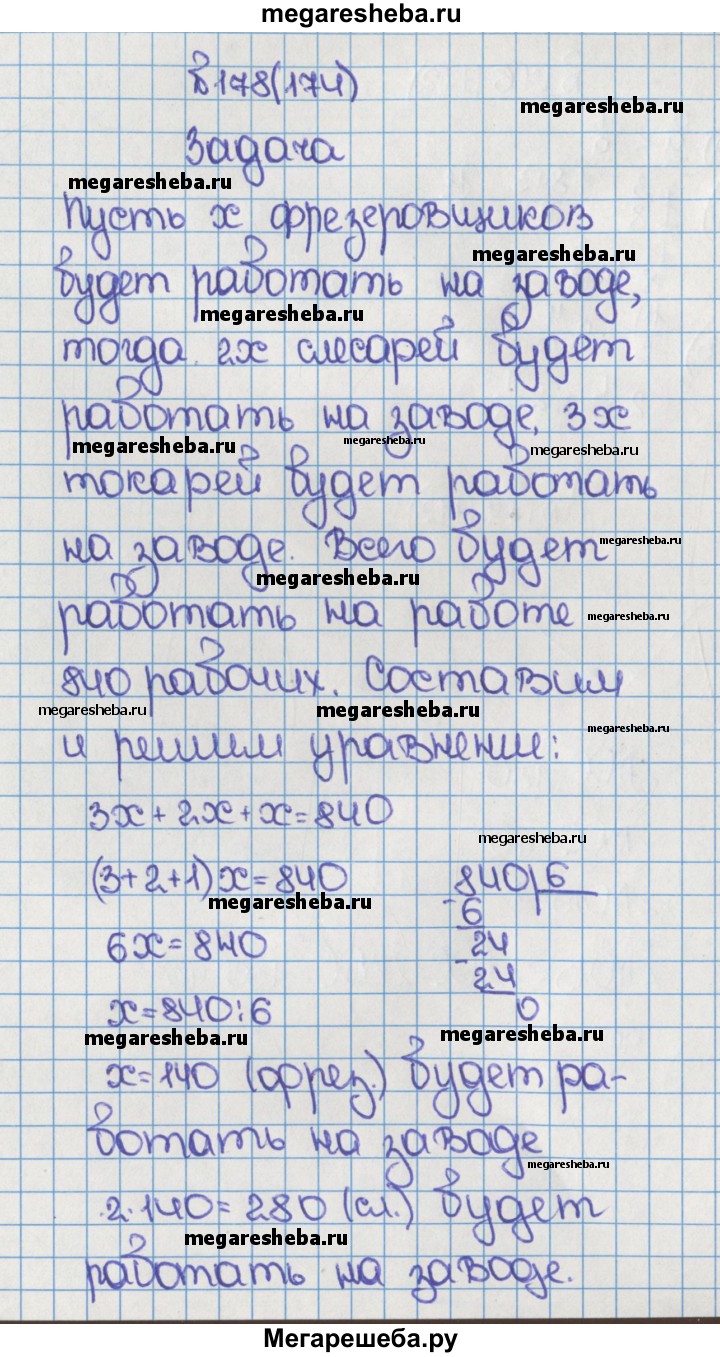 megaresheba.ru
№178(174)
megaresheba.ru
Задача
megaresheba.ru
Пусть x фрезеровщиков
megaresheba.ru
будет работать на заводе,
megaresheba.ru
тогда 2x слесарей будет
работать на заводе, 3x
megaresheba.ru megaresheba.ru megaresheba.ru
токарей будет работать
на заводе. Всего будет megaresheba.ru
megaresheba.ru
работать на работе megaresheba.ru
840 рабочих. Составим
megaresheba.ru megaresheba.ru megaresheba.ru
и решим уравнение:
3x+2x+x=840
megaresheba.ru
(3+2+1)x=840 840 6
megaresheba.ru
-6
6x=840 24
-24
x=840:6 0
megaresheba.ru megaresheba.ru
x=140 (фрез.) будет ра-
ботать на заводе
megaresheba.ru
2·140=280 (сл.) будет
megaresheba.ru
работать на заводе.
Мегарешеба.ру